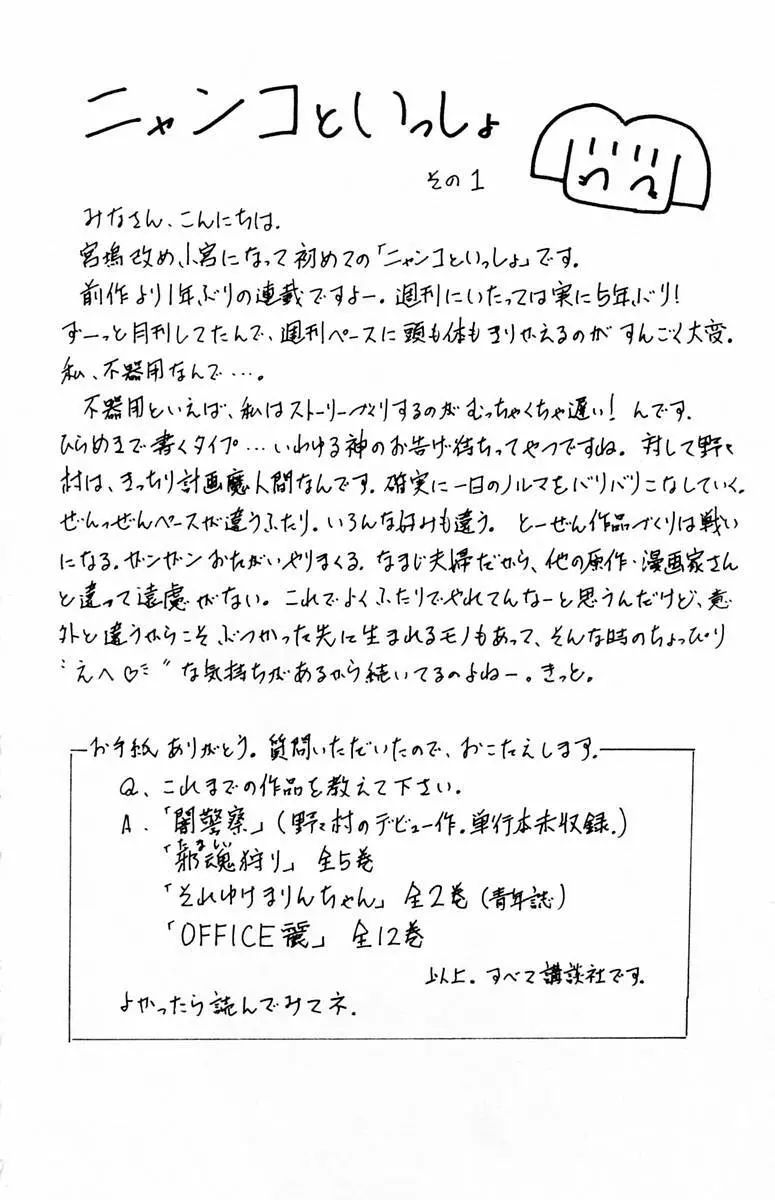 ニャンコといっしょ
その1
みなさん、こんにちは.
宮塲改め、小宮になって初めての「ニャンコといっしょ」です.
前作より1年ぶりの連載ですよー。週刊にいたっては実に5年ぶり!
ずーっと月刊してたんで、週刊ペースに頭も体もきりかえるのがすんごく大変。
私、不器用なんで…。
不器用といえば、私はストーリーづくりするのがむっちゃくちゃ遅い!んです.
ひらめきで書くタイプ…いわゆる神のお告げ待ちってやつですね。対して野々
村は、きっちり計画魔人間なんです.確実に一日のノルマをバリバリこなしていく.
ぜんっぜんペースが違うふたり.いろんな好みも違う。とーぜん作品づくりは戦い
になる.ガンガンおたがいやりまくる.なまじ夫婦だから、他の原作・漫画家さん
と違って遠慮がない。これでよくふたりでやれてんなーと思うんだけど、意
外と違うからこそぶつかった先に生まれるモノもあって、そんな時のちょっぴり
"えへ♡"な気持ちがあるから続いてるのよねー。きっと。
お手紙ありがとう。質問いただいたので、おこたえします.
Q、これまでの作品を教えて下さい.
A.「闇警察」(野々村のデビュー作.単行本未収録.)
「邪魂狩り」全5巻
たまい
「それゆけまりんちゃん」全2巻(青年誌)
「OFFICE麗」全12巻
以上。すべて講談社です.
よかったら読んでみてネ.